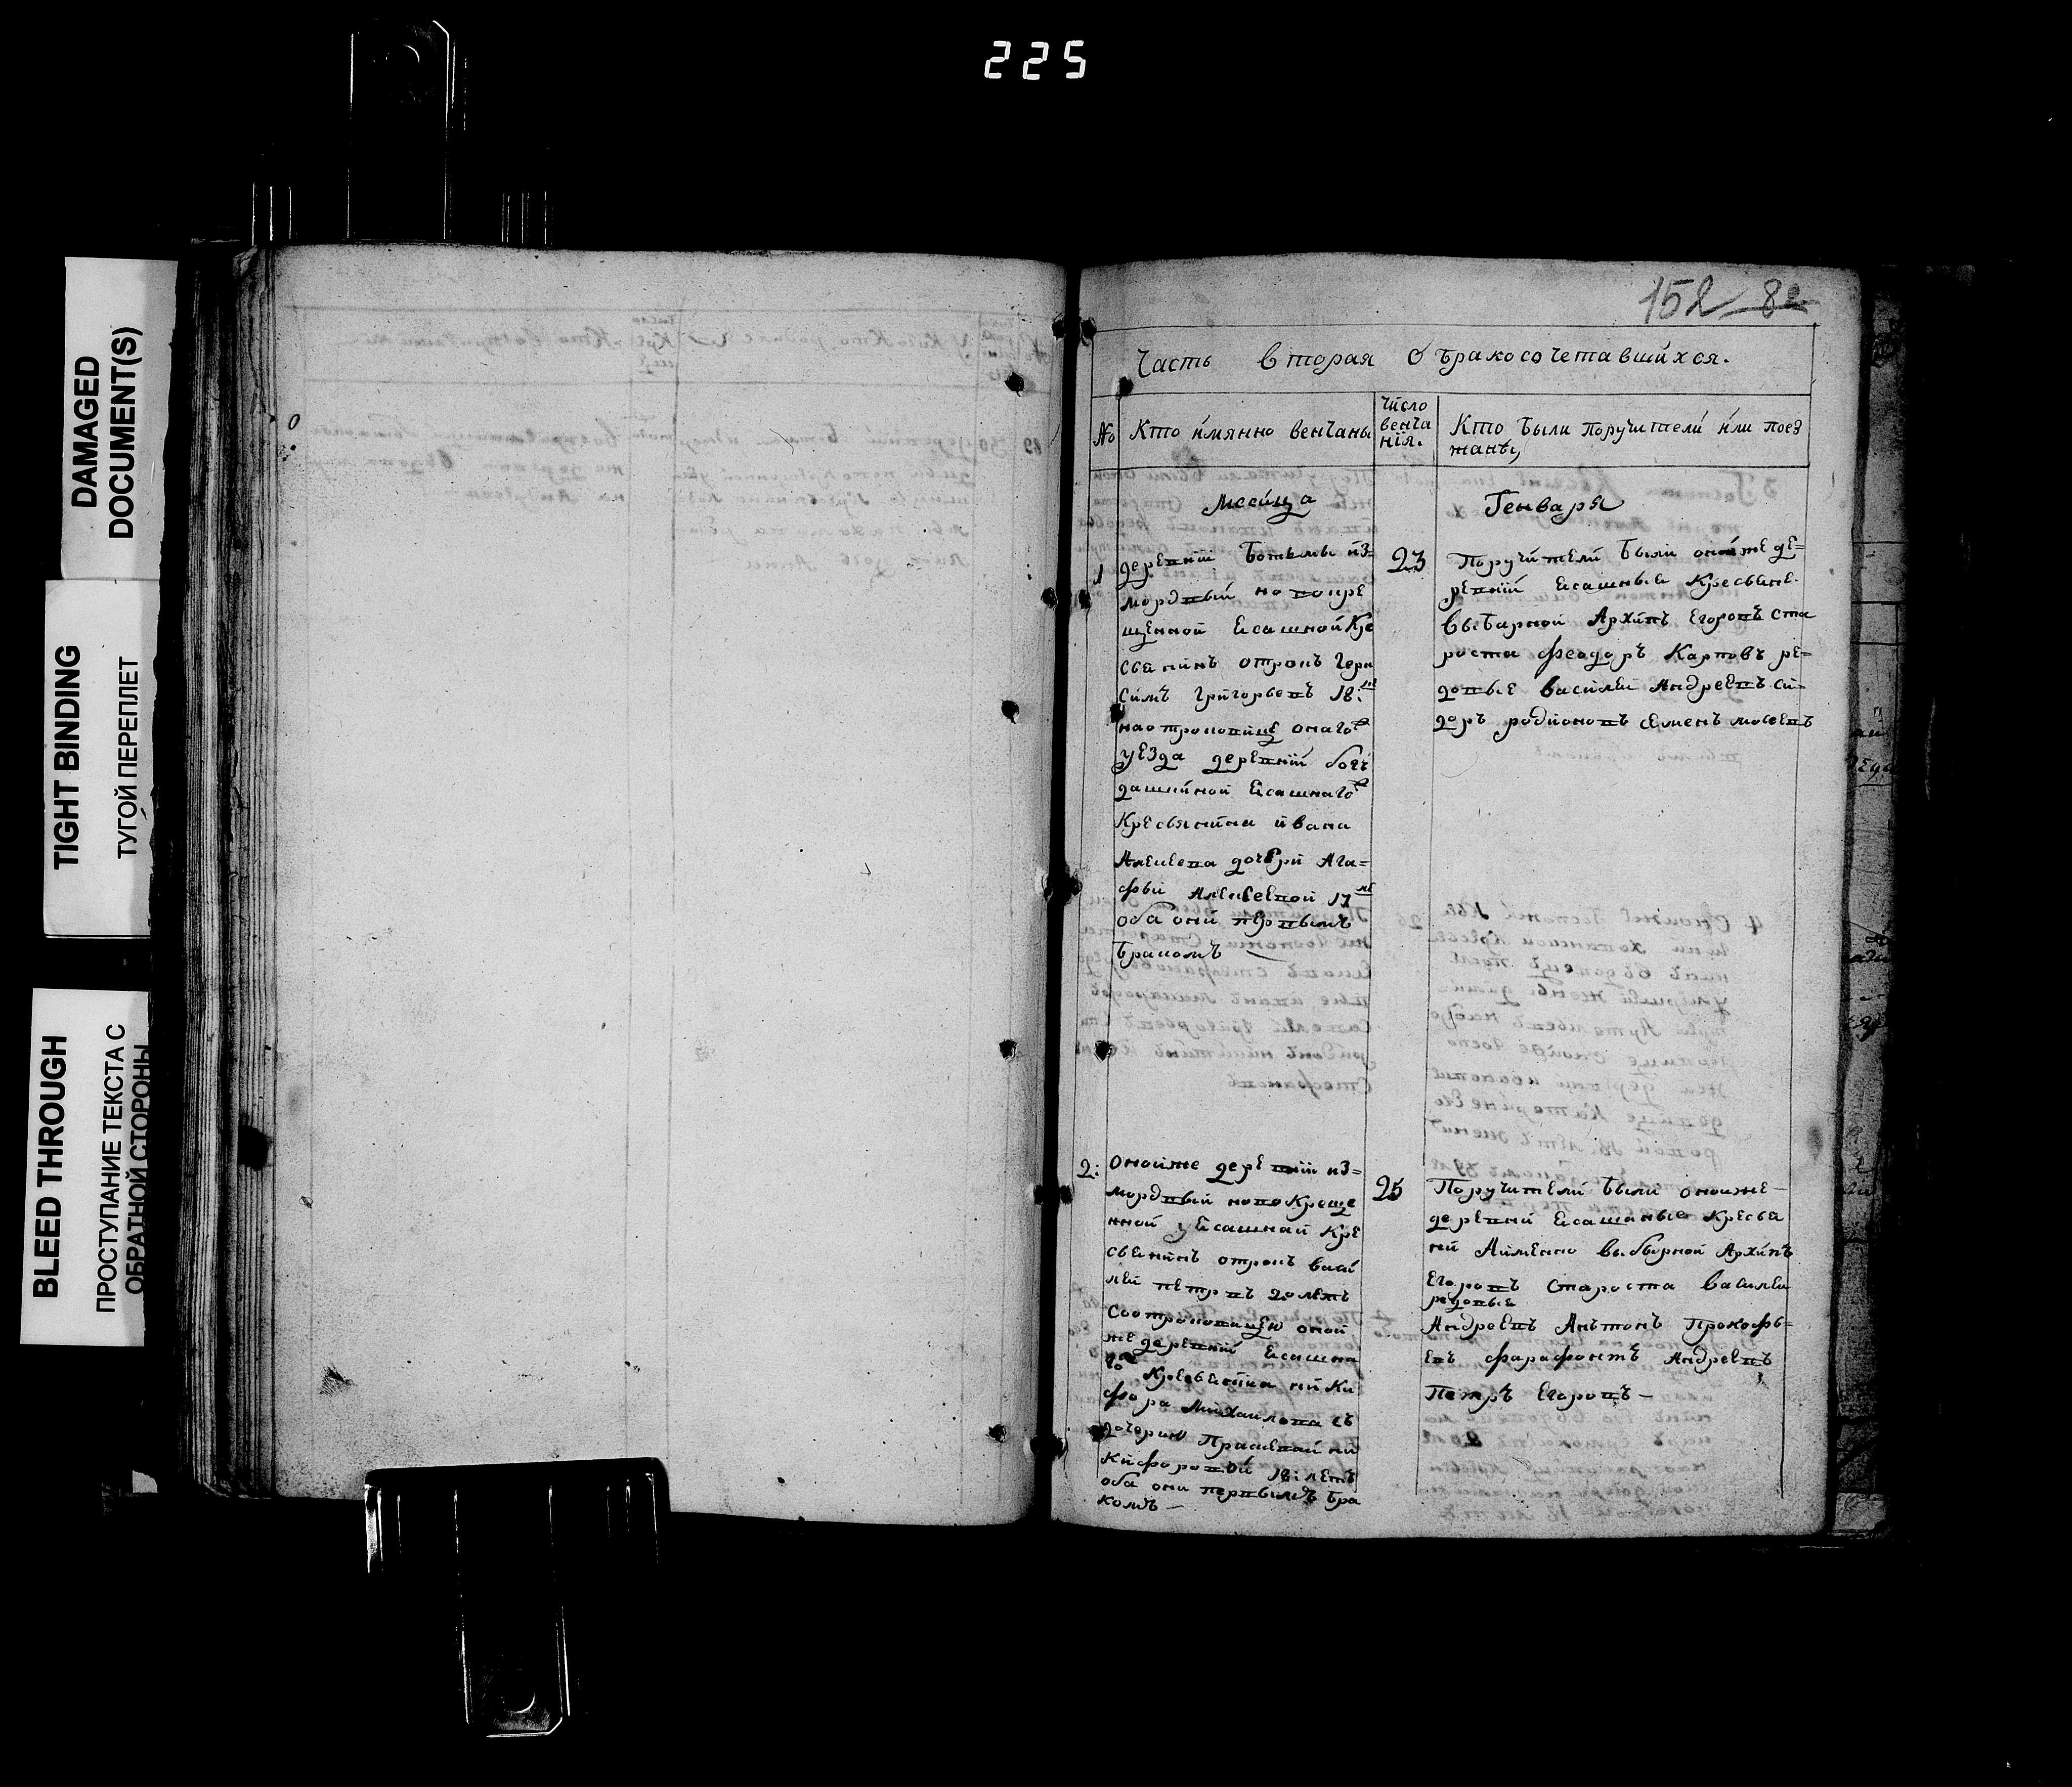 225
DAMAGED
DOCUMENT(S)
TIGHT BINDING
ТУГОЙ ПЕРЕПЛЕТ
BLEED THROUGH
ПРОСТУПАНИЕ ТЕКСТА С
ОБРАТНОЙ СТОРОНЫ
152 82
Часть вторая о бракосочетавшихся.
№
Кто имянно венчаны
число
венча
нія.
Кто были поручители или поез
жанѣ,
Мсеица
Генваря
1
деревни из=
мордвы новокре
щенной ясашной кре
сьянинъ отрокъ гера
симъ григорьевъ 18:
на отроковице онаго
уезда деревни
ясашнаго
кресьянина ивана
дочери ага=
фьи 17
оба они первымъ
бракомъ
23
Поручители были онойже де=
ревни ясашные кресьяне
выбарной Архипъ Егоровъ ста
роста феодоръ Карповъ ре=
довые василеи Андреевъ си=
доръ родионовъ семенъ мосеевъ
2:
Онойже деревни из=
мордвы новокреще
нной уясашнай кре
сьянинъ отрокъ васи
леи петръвъ 20 летъ
соотроковицею оной
же деревни ясашна
го кресьянина ники
фора Михаилова съ
дочерию ни
кифоровой 18: летъ
оба они первымъ бра
комъ —
25
Поручители были онойже
деревни ясашаные кресья
ни Аимянно выборной Архипъ
Егоровъ староста василеи
редовые
Андреевъ Антонъ Прокофь=
евъ фарафонтъ Андреевъ
Петръ Егоровъ —